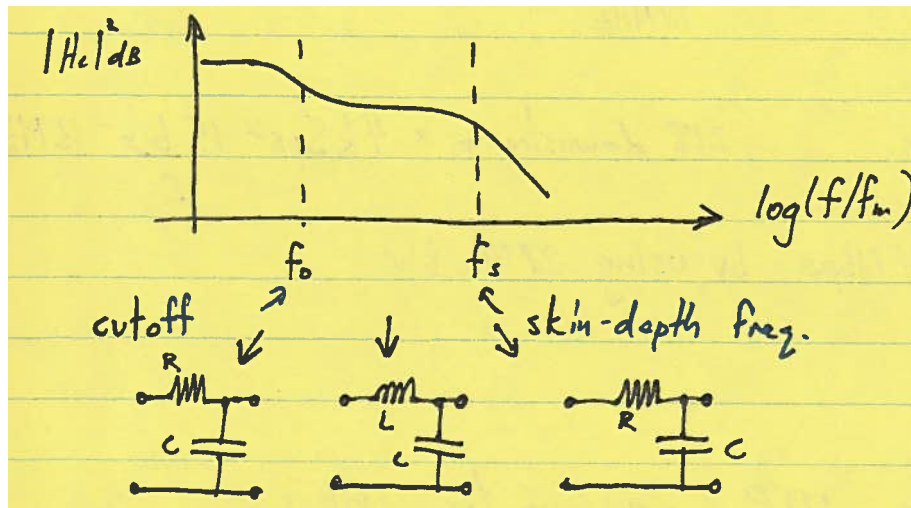 |Hc|² dB
log(f/fm)
fo fs
cutoff skin-depth freq.
R L R
C C C